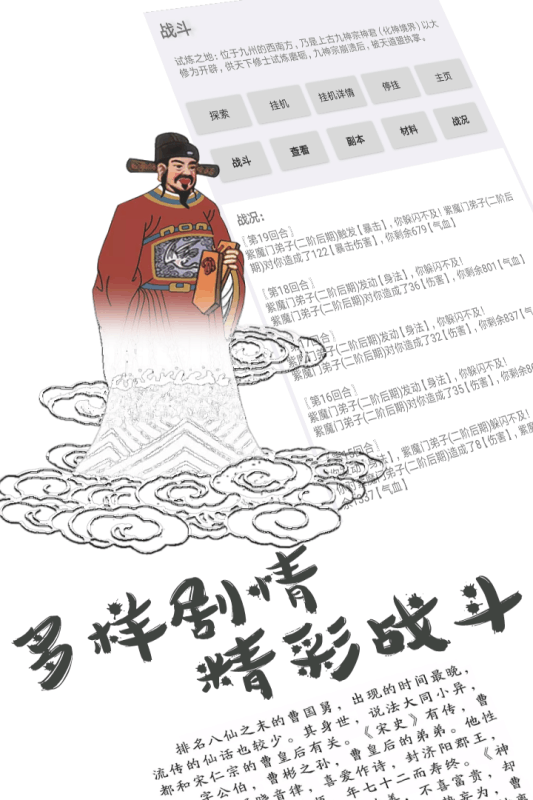 战斗
试炼之地：位于九州的西南方，乃是上古九神宗神君（化神境界）以大
修为开辟，供天下修士试炼磨砺，九神宗崩溃后，被天道盟执掌。
探索 挂机 挂机详情 停挂 主页
战斗 查看 副本 材料 战况
战况：
〖第19回合〗
紫魔门弟子(二阶后期)触发【暴击】，你躲闪不及! 紫魔门弟子(二阶后
期)对你造成了122【暴击伤害】，你剩余679【气血】
〖第18回合〗
紫魔门弟子(二阶后期)发动【身法】，你躲闪不及!
紫魔门弟子(二阶后期)对你造成了36【伤害】，你剩余801【气血】
回合〗
紫魔门弟子(二阶后期)发动【身法】，你躲闪不及!
紫魔门弟子(二阶后期)对你造成了32【伤害】，你剩余837【气
〖第16回合〗
紫魔门弟子(二阶后期)发动【身法】，你躲闪不及!
紫魔门弟子(二阶后期)对你造成了35【伤害】，你剩余
回合〗
紫魔门弟子(二阶后期)躲闪不及!
门弟子(二阶后期)造成了8【伤害】，紫魔
337【气血】
多样剧情
精彩战斗
排名八仙之末的曹国舅，出现的时间最晚，
流传的仙话也较少。其身世，说法大同小异，
都和宋仁宗的曹皇后有关。《宋史》有传，曹
字公伯，曹彬之孙，曹皇后的弟弟。他性
晓音律，喜爱作诗，封济阳郡王，
年七十二而寿终。《神
美，不喜富贵，却
为，曹